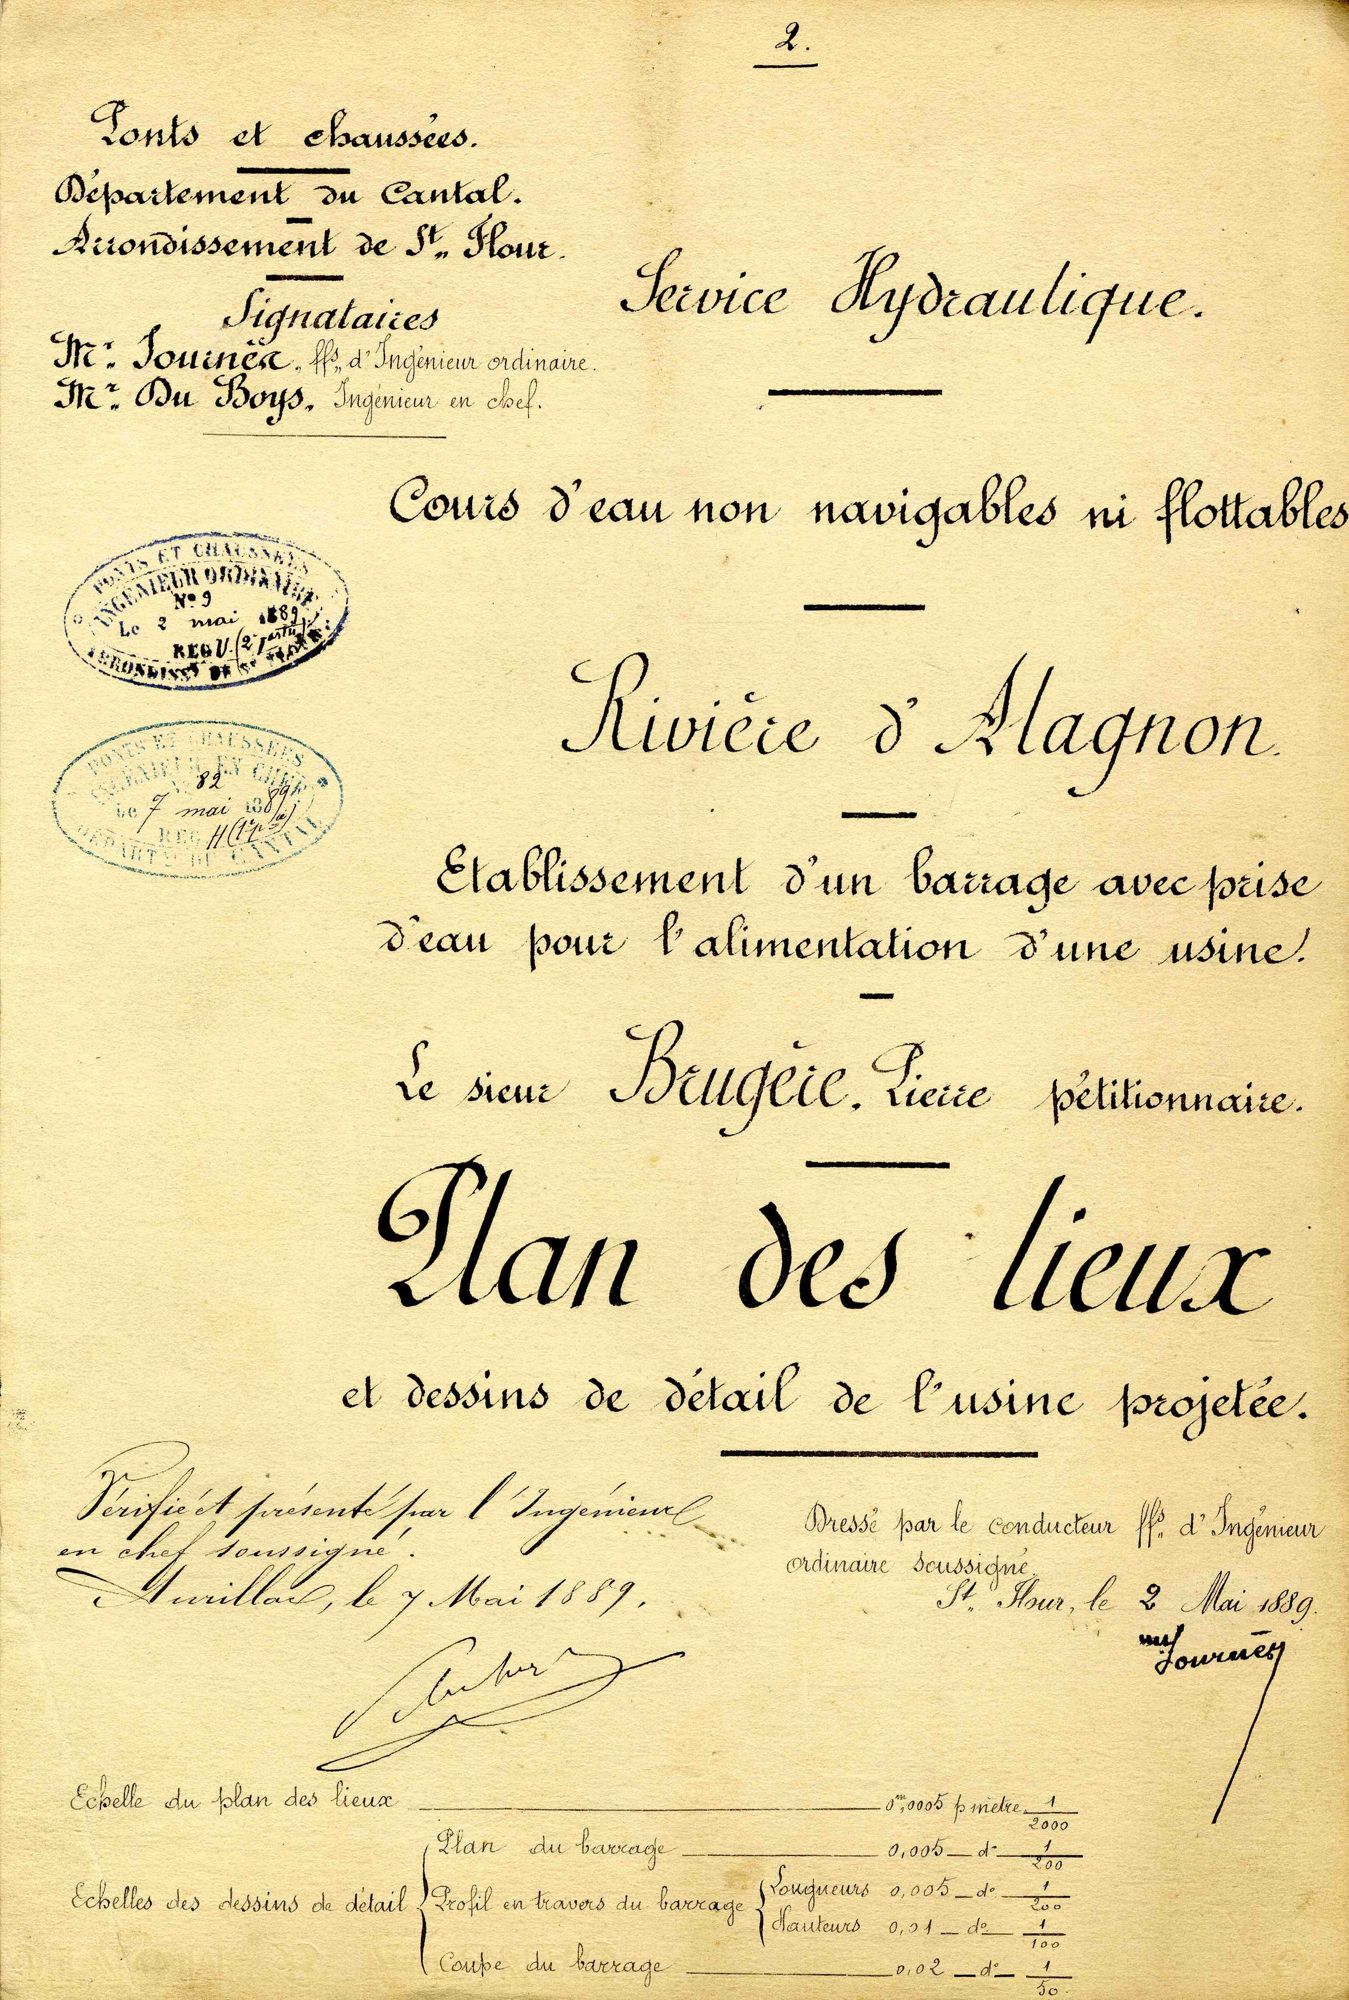 2.
Ponts et chaussées.
Département du Cantal.
Arrondissement de St„ Flour.
Signataires
Mr„ Journée, ffs„ d'Ingénieur ordinaire.
Mr„ Du Boys, Ingénieur en chef.
Service Hydraulique.
Cours d'eau non navigables ni flottables
PONTS ET CHAUSSÉES
INGÉNIEUR ORDINAIRE
No 9
Le 2 mai 1889
REG V. (2e partie)
ARRONDISSt DE St FLOUR
Rivière d'Alagnon.
PONTS ET CHAUSSÉES
INGÉNIEUR EN CHEF
82
Le 7 mai 1889
REG H
DÉPARTt DU CANTAL
Etablissement d'un barrage avec prise
d'eau pour l'alimentation d'une usine.
Le sieur Brugère. Pierre pétitionnaire.
Plan des lieux
et dessins de détail de l'usine projetée.
Vérifié et présenté par l'Ingénieur
en chef soussigné.
Aurillac, le 7 Mai 1889.
Dressé par le conducteur ffs„ d'Ingénieur
ordinaire soussigné.
St„ Flour, le 2 Mai 1889.
Journée
Echelle du plan des lieux 0m,0005 p mètre 1/2000
Plan du barrage 0,005 do 1/200
Echelles des dessins de détail Profil en travers du barrage Longueurs 0,005 do 1/200
Hauteurs 0,01 do 1/100
Coupe du barrage 0,02 do 1/50